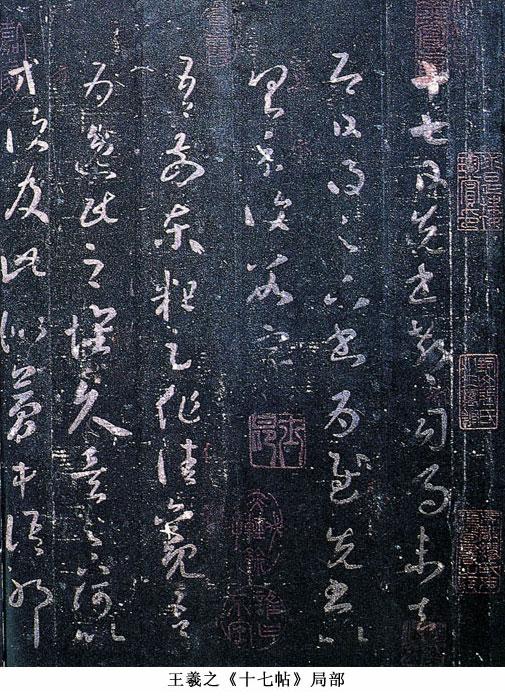 十七日先書郗司馬未去
即日得足下書為慰先書以
具示復數字
吾前東粗足作佳觀吾
為逸民之懷久矣足下何以
方復及此似夢中語耶
王羲之《十七帖》局部